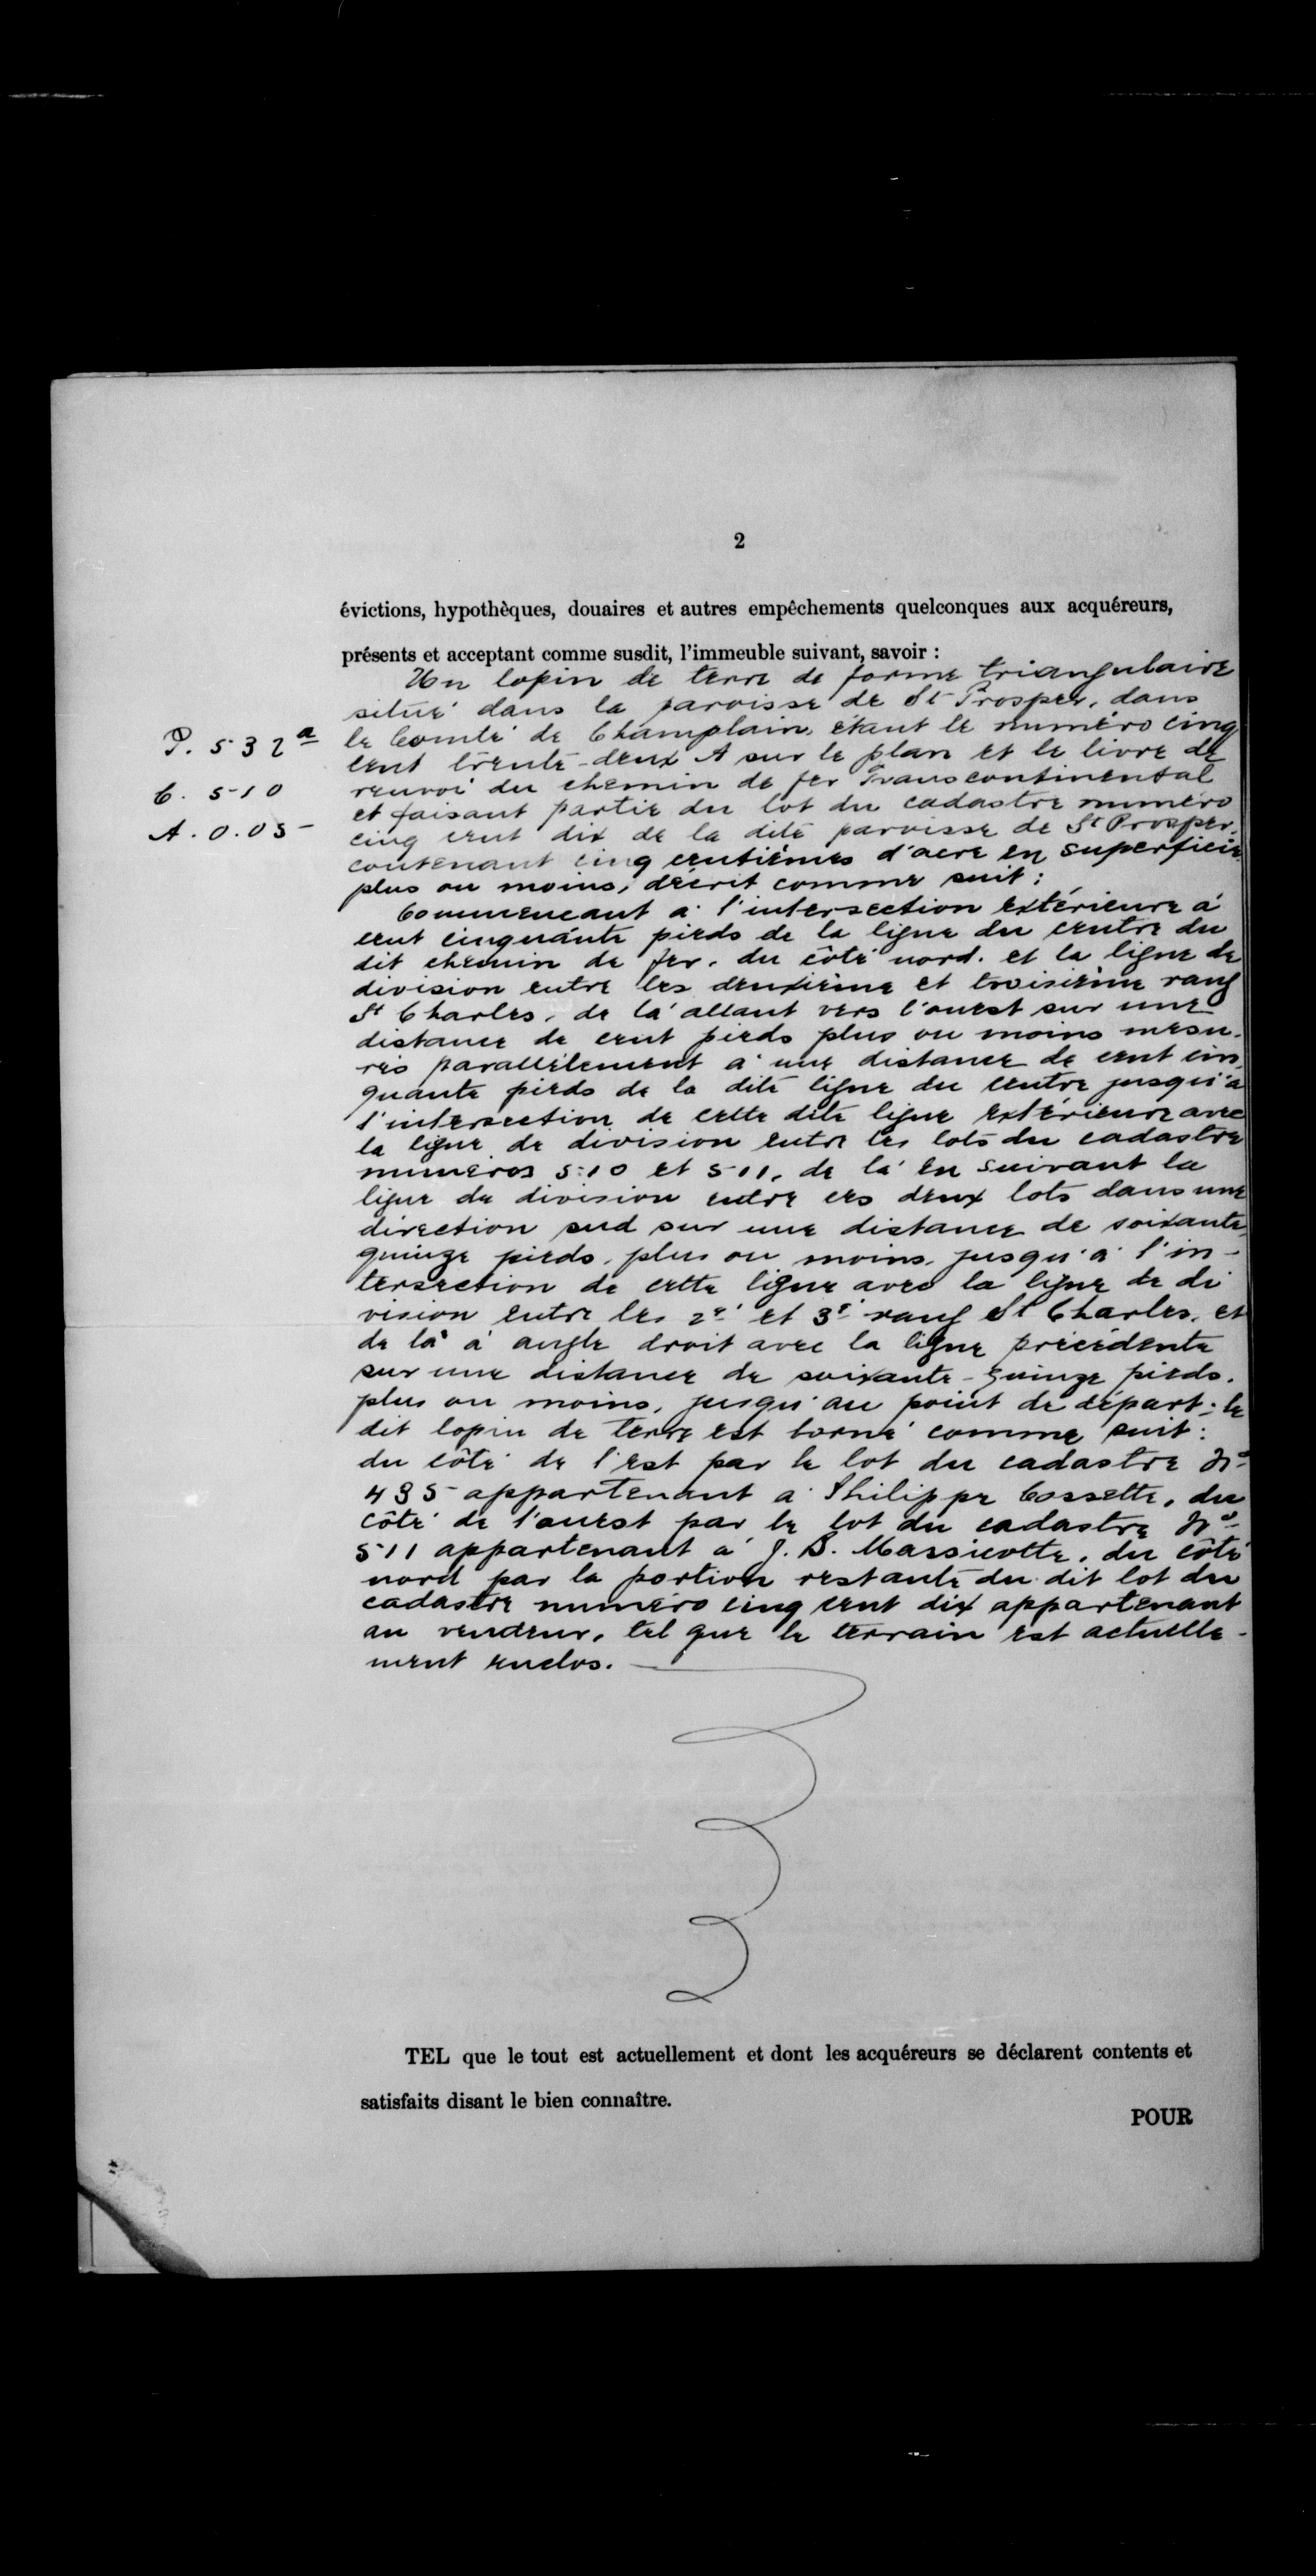 2
évictions, hypothèques, douaires et autres empêchements quelconques aux acquéreurs,
présents et acceptant comme susdit, l'immeuble suivant, savoir :
Un lopin de terre de forme triangulaire
situé dans la paroisse de St Prosper, dans
P. 532a
le Comté de Champlain, étant le numéro cinq
cent trente-deux A sur le plan et le livre de
C. 510
renvoi du chemin de fer Transcontinental
et faisant partie du lot du cadastre numéro
A. 0.05
cinq cent dix de la dite paroisse de St Prosper,
contenant cinq centièmes d'acre en superficie
plus ou moins, décrit comme suit :
Commencant à l'intersection extérieure à
cent cinquante pieds de la ligne du centre du
dit chemin de fer, du côté nord, et la ligne de
division entre les deuxième et troisième rang
St Charles, de là allant vers l'ouest sur une
distance de cent pieds plus ou moins mesu-
rés parallèlement à une distance de cent cin-
quante pieds de la dite ligne du centre jusqu'à
l'intersection de cette dite ligne extérieure avec
la ligne de division entre les lots du cadastre
numéros 510 et 511, de là en suivant la
ligne de division entre ces deux lots dans une
direction sud sur une distance de soixante-
quinze pieds, plus ou moins, jusqu'à l'in-
tersection de cette ligne avec la ligne de di
vision entre les 2e et 3e rang St Charles, et
de là à angle droit avec la ligne précédente
sur une distance de soixante-quinze pieds,
plus ou moins, jusqu'au point de départ ; le
dit lopin de terre est borné comme suit :
du côté de l'est par le lot du cadastre No
435 appartenant à Philippe Cossette, du
côté de l'ouest par le lot du cadastre No
511 appartenant à J. B. Massicotte, du côté
nord par la portion restante du dit lot du
cadastre numéro cinq cent dix appartenant
au vendeur, tel que le terrain est actuelle-
ment enclos.
TEL que le tout est actuellement et dont les acquéreurs se déclarent contents et
satisfaits disant le bien connaître.
POUR